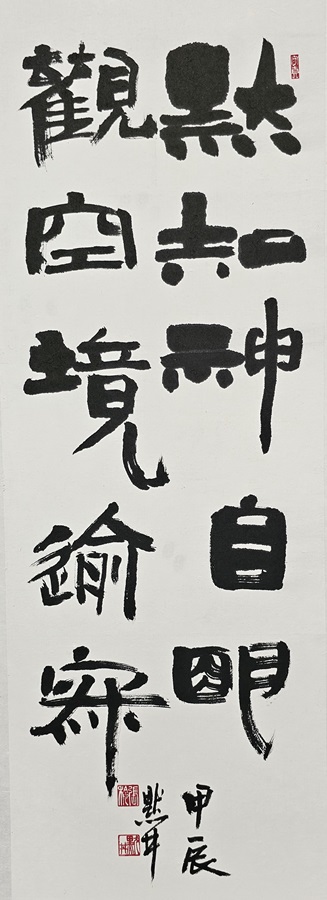 默知神自明
觀空境逾寂
甲辰
默井